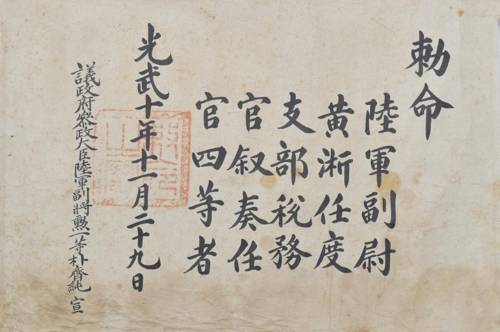 勅命
陸軍副尉
黃淅任度
支部稅務
官叙奏任
官四等者
光武十年十一月二十九日
議政府叅政大臣陸軍副將勲一等朴齊純 宣